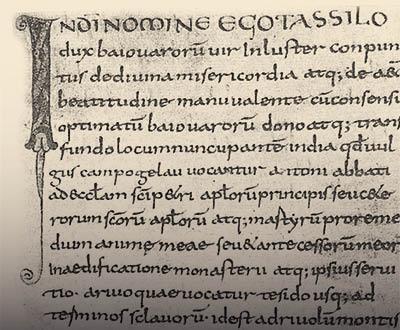 IN DĪ NOMINE EGO TASSILO
dux baiouarorū uir Inluster conpun
tus dediuina misericordia atq; de
beatitudine manu ualente cū consensu
optimatū baiouarorū dono atq; trans
fundo locum nuncupante india qđ uul
gus campo gelau uocantur attoni abbati
ad eccłam scī petri apłorū principis seu cete
rorum scōrū apłorū atq; martyrū pro reme
dium anime meae seu & ante cessorū meor
In aedificatione monasterii atq; ipsius serui
tio. a riuo quae uocatur tesido usq; ad
terminos sclauorū. id est ad riuolū montis